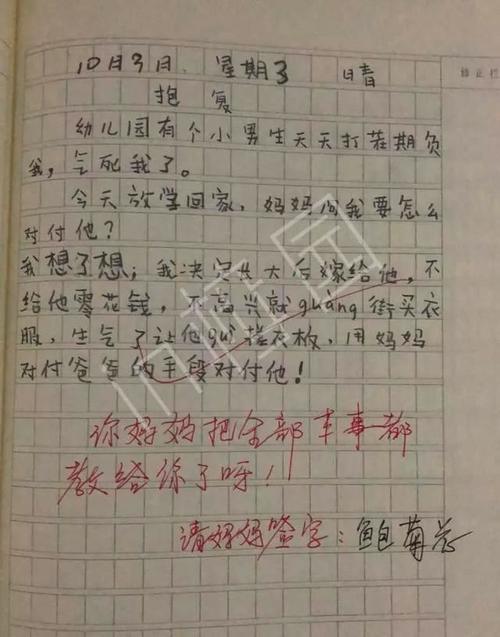 10月3日 星期3 晴
抱 复
幼儿园有个小男生天天打茬期负
我，气死我了。
今天放学回家，妈妈问我要怎么
对付他？
我想了想，我决定长大后嫁给他，不
给他零花钱，不高兴就guàng街买衣
服，生气了让他guì搓衣板，用妈妈
对付爸爸的手段对付他！
你妈妈把全部本事都
教给你了呀！
请妈妈签字：鲍菊芯
修正栏